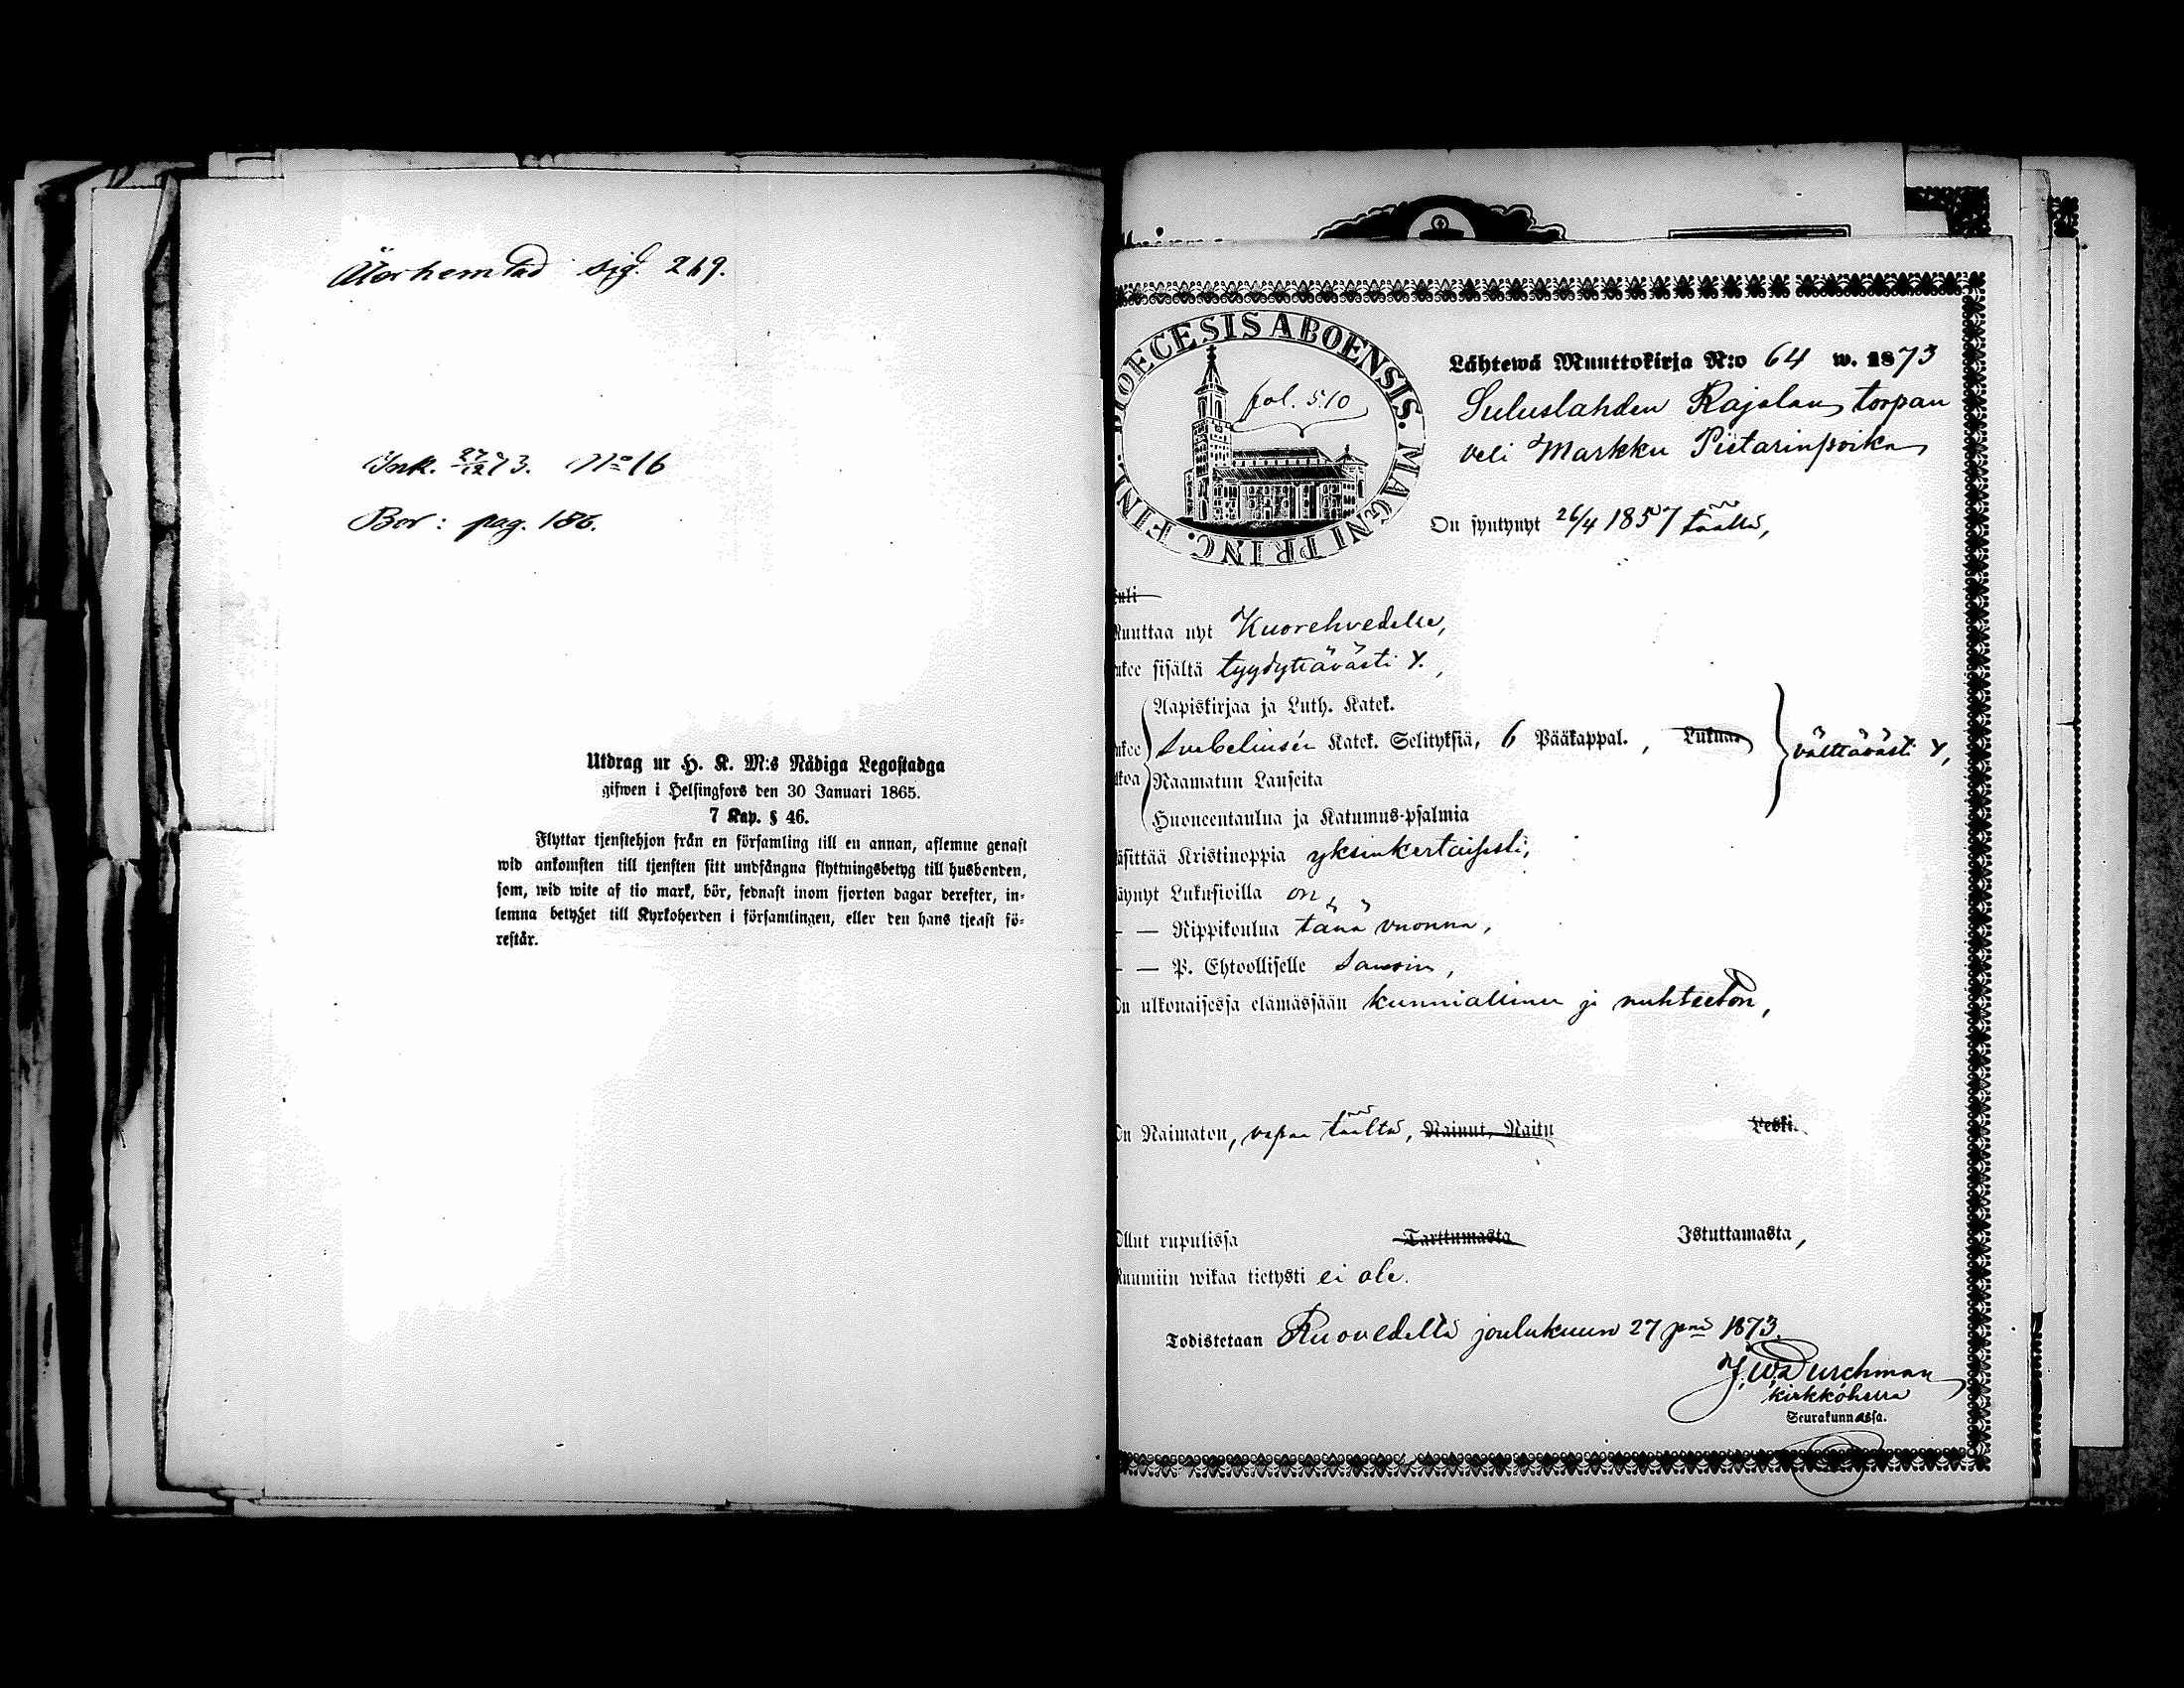 Återhemtad sid. 269.
Ink. 27/12 73. No 16
Bor: pag. 186.
Utdrag ur H. K. M:s Nådiga Legostadga
gifwen i Helsingfors den 30 Januari 1865.
7 Kap. § 46.
Flyttar tjenstehjon från en församling till en annan, aflemne genast
wid ankomsten till tjensten sitt undfångna flyttningsbetyg till husbonden,
som, wid wite af tio mark, bör, sednast inom fjorton dagar derefter, in-
lemna betyget till Kyrkoherden i församlingen, eller den hans tjenst fö-
restår.
DIOECESIS ABOENSIS. MAGNI PRINC. FINL.
fol. 510
Lähtewä Muuttokirja N:o 64 w. 1873
Suluslahden Rajalan torpan
veli Markku Pietarinpoika
On syntynyt 26/4 1857 täällä,
uli
uuttaa nyt Kuorehvedelle,
ukee sisältä tyydyttävästi Y.,
Aapiskirjaa ja Luth. Katek.
ukee Svebeliusén Katek. Selityksiä, 6 Pääkappal., Lukuas välttävästi Y,
lkoa Raamatun Lauseita
Huoneentaulua ja Katumus-psalmia
äsittää Kristinoppia yksinkertaisesti,
äynyt Lukusioilla on
— — Rippikoulua tänä vuonna,
— — P. Ehtoolliselle samoin,
On ulkonaisessa elämässään kunniallinen ja nuhteeton,
On Naimaton, vapaa täältä, Nainut, Naitu Leski.
Ollut rupulissa Tarttumasta Istuttamasta,
Ruumiin wikaa tietysti ei ole.
Todistetaan Ruovedellä joulukuun 27 pnä 1873.
J. W. Durchman
kirkkoherra
Seurakunnassa.